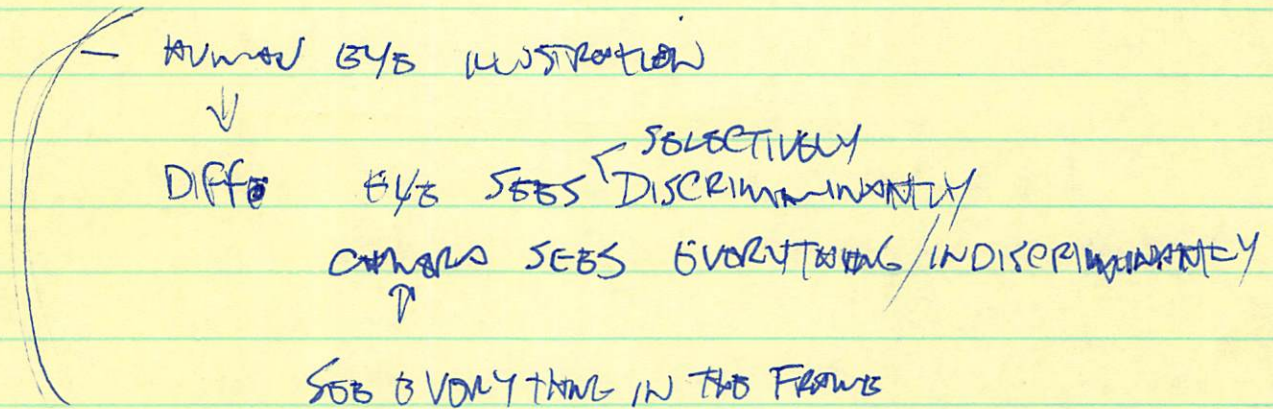 — HUMAN EYE ILLUSTRATION
↓
SELECTIVELY
DIFFE EYE SEES DISCRIMINANTLY
CAMERA SEES EVERYTHING/INDISCRIMINANTLY
↑
SEE EVERYTHING IN THE FRAME